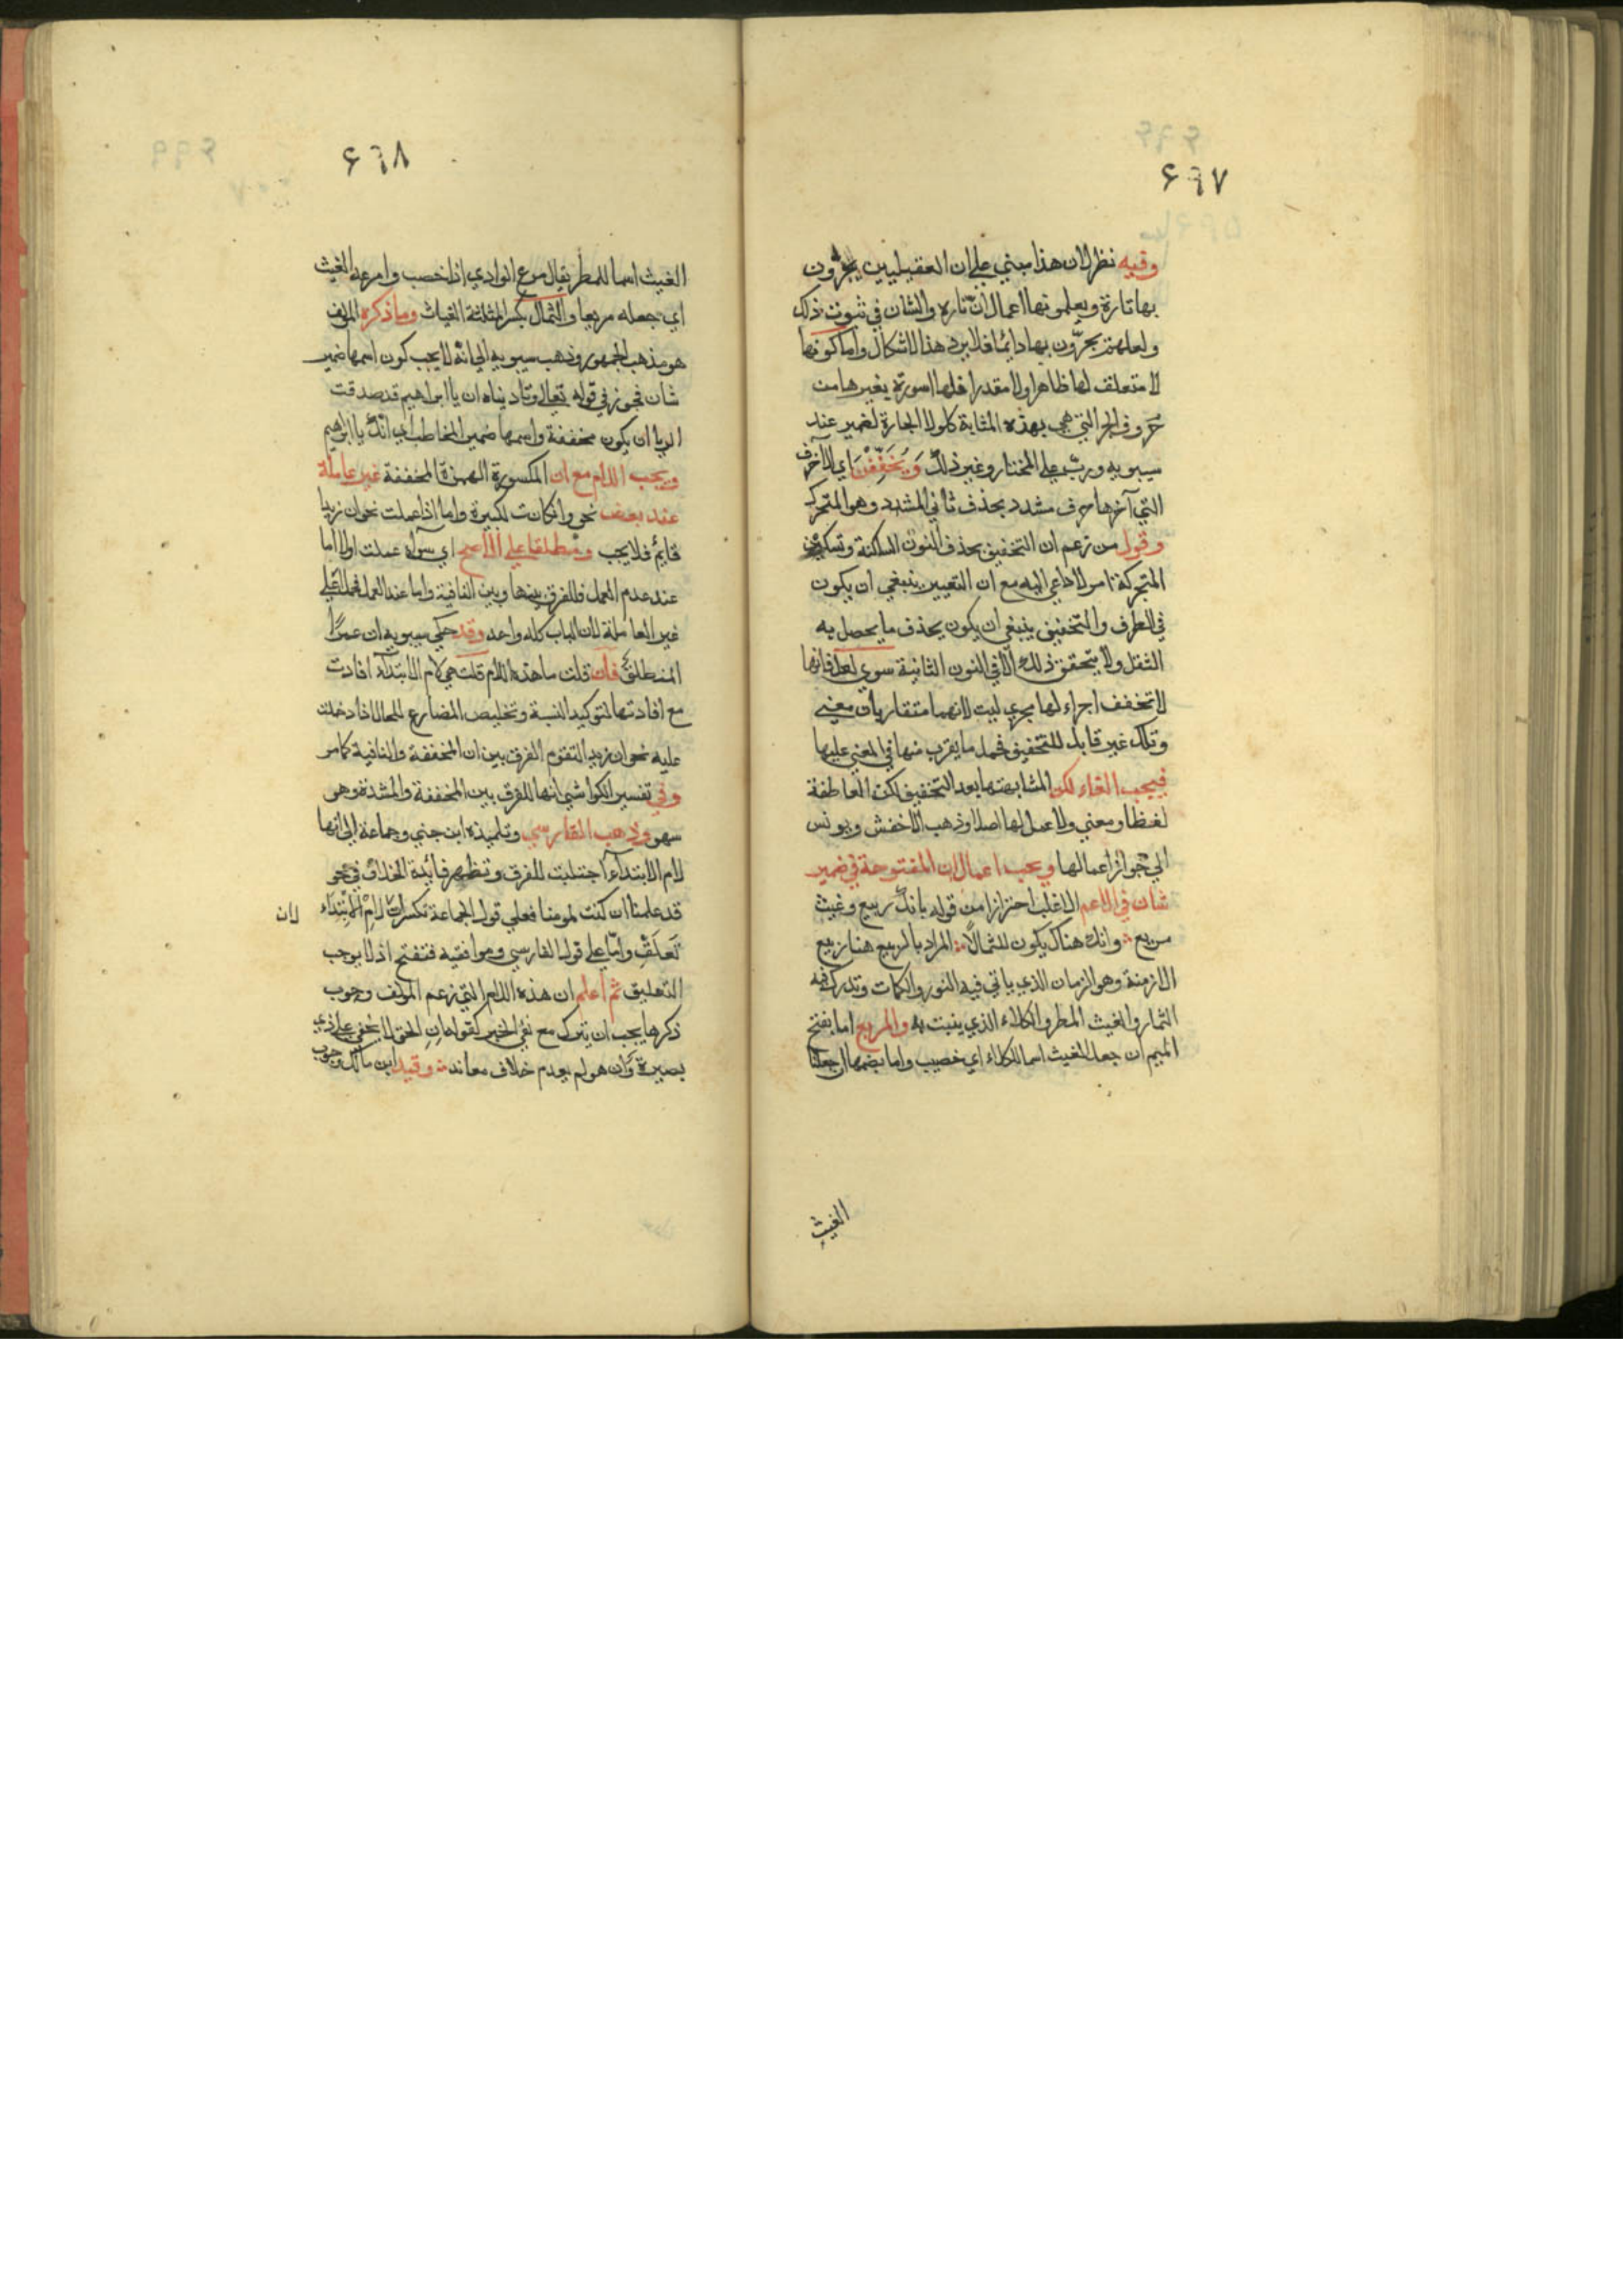 ٤٦٧
وفيه نظر لان هذا مبني علي ان العقيليين يجرّون
بها تارة ويعملونها اعمال انّ تاره والشان في ثبوت ذلك
ولعلهم يجرّون بها دايما فلا يرد هذا الاشكال واما كونها
لا متعلف لها ظاهرا ولا مقدرا فلها اسوة بغيرها من
حروف الجر التي هي بهذه المثابة كلولا الجارة لضمير عند
سيبويه وربّ علي المختار وغير ذلك وَيُخَفِّفْنَ اي الاحرف
التي آخرها حرف مشدد بحذف ثاني المشدد وهو المتحرك
وقول من زعم ان التخفيف بحذف النون الساكنة وتسكين
المتحركة امر لا داعي اليه مع ان التعيين ينبغي ان يكون
في الطرف والتخفيف ينبغي ان يكون بحذف ما يحصل به
الثقل ولا يتحقق ذلك الا في النون الثانية سوي لعل فانها
لا تخفف اجراء لها مجري ليت لانهما متقاربان معني
وتلك غير قابلة للتخفيف فحمل ما يقرب منها في المعني عليها
فيجب الغاء لكن لمشابهتها بعد التخفيف لكن العاطفة
لفظا ومعني ولا عمل لها اصلا وذهب الاخفش ويونس
الي جواز اعمالها ويجب اعمال ان المفتوحة في ضمير
شان في الاعم الاغلب احترازا من قوله بانك ربيع وغيث
مريع وانك هناك يكون الثمالا المراد بالربيع هنا ربيع
الازمنة وهو الزمان الذي ياتي فيه النور والكمات وتدرك فيه
الثمار والغيث المطر والكلاء الذي ينبت به والمريع اما بفتح
الميم ان جعل الغيث اسما للكلاء اي خصيب واما بضمها ان جعلنا
الغيث
٤٦٨
الغيث اسما للمطر يقال مرع الوادي اذا خصب وامرعه الغيث
اي جعله مريعا والثمال بكسر المثلثة الغياث وما ذكره المولف
هو مذهب الجمهور وذهب سيبويه الي انه لا يجب كون اسمها ضمير
شان فجوز في قوله تعالي وناديناه ان يا ابراهيم قد صدقت
الريا ان يكون مخففة واسمها ضمير المخاطب اي انك يا ابراهيم
ويجب اللام مع ان المكسورة الهمزة المخففة غير عاملة
عند بعض نحو وان كانت لكبيرة واما اذا عملت نحو ان زيدا
قايم فلا يجب ومطلقا علي الاصح اي سواء عملت اولا اما
عند عدم العمل فللفرق بينها وبين النافية واما عند العمل فحملا علي
غير العاملة لان الباب كله واحد وقد حكي سيبويه ان عمرًا
لمنطلق فان قلت ما هذه اللام قلت هي لام الابتداء افادت
مع افادتها لتوكيد النسبة وتخليص المضارع للحال اذا دخلت
عليه نحو ان زيدا لتقوم الفرق بين ان المخففة والنافية كما مر
وفي تفسير الكواشي انها للفرق بين المخففة والمشددة وهو
سهو وذهب الفارسي وتلميذه ابن جني وجماعة الي انها
لام الابتداء اجتلبت للفرق وتظهر فايدة الخلاف في نحو
قد علمنا ان كنت لمومنا فعلي قول الجماعة تكسر ان لامْ الابتداء لان
تَعَلَق واما علي قول الفارسي وموافقيه فتفتح اذ لا يوجب
التعليق ثم اعلم ان هذه اللام التي زعم المولف وجوب
ذكرها يجب ان تترك مع نفي الخبر كقوله ان الحق لا يخفي علي ذي
بصيرة وان هو لم يعدم خلاف معاند وقيد ابن مالك وجوب